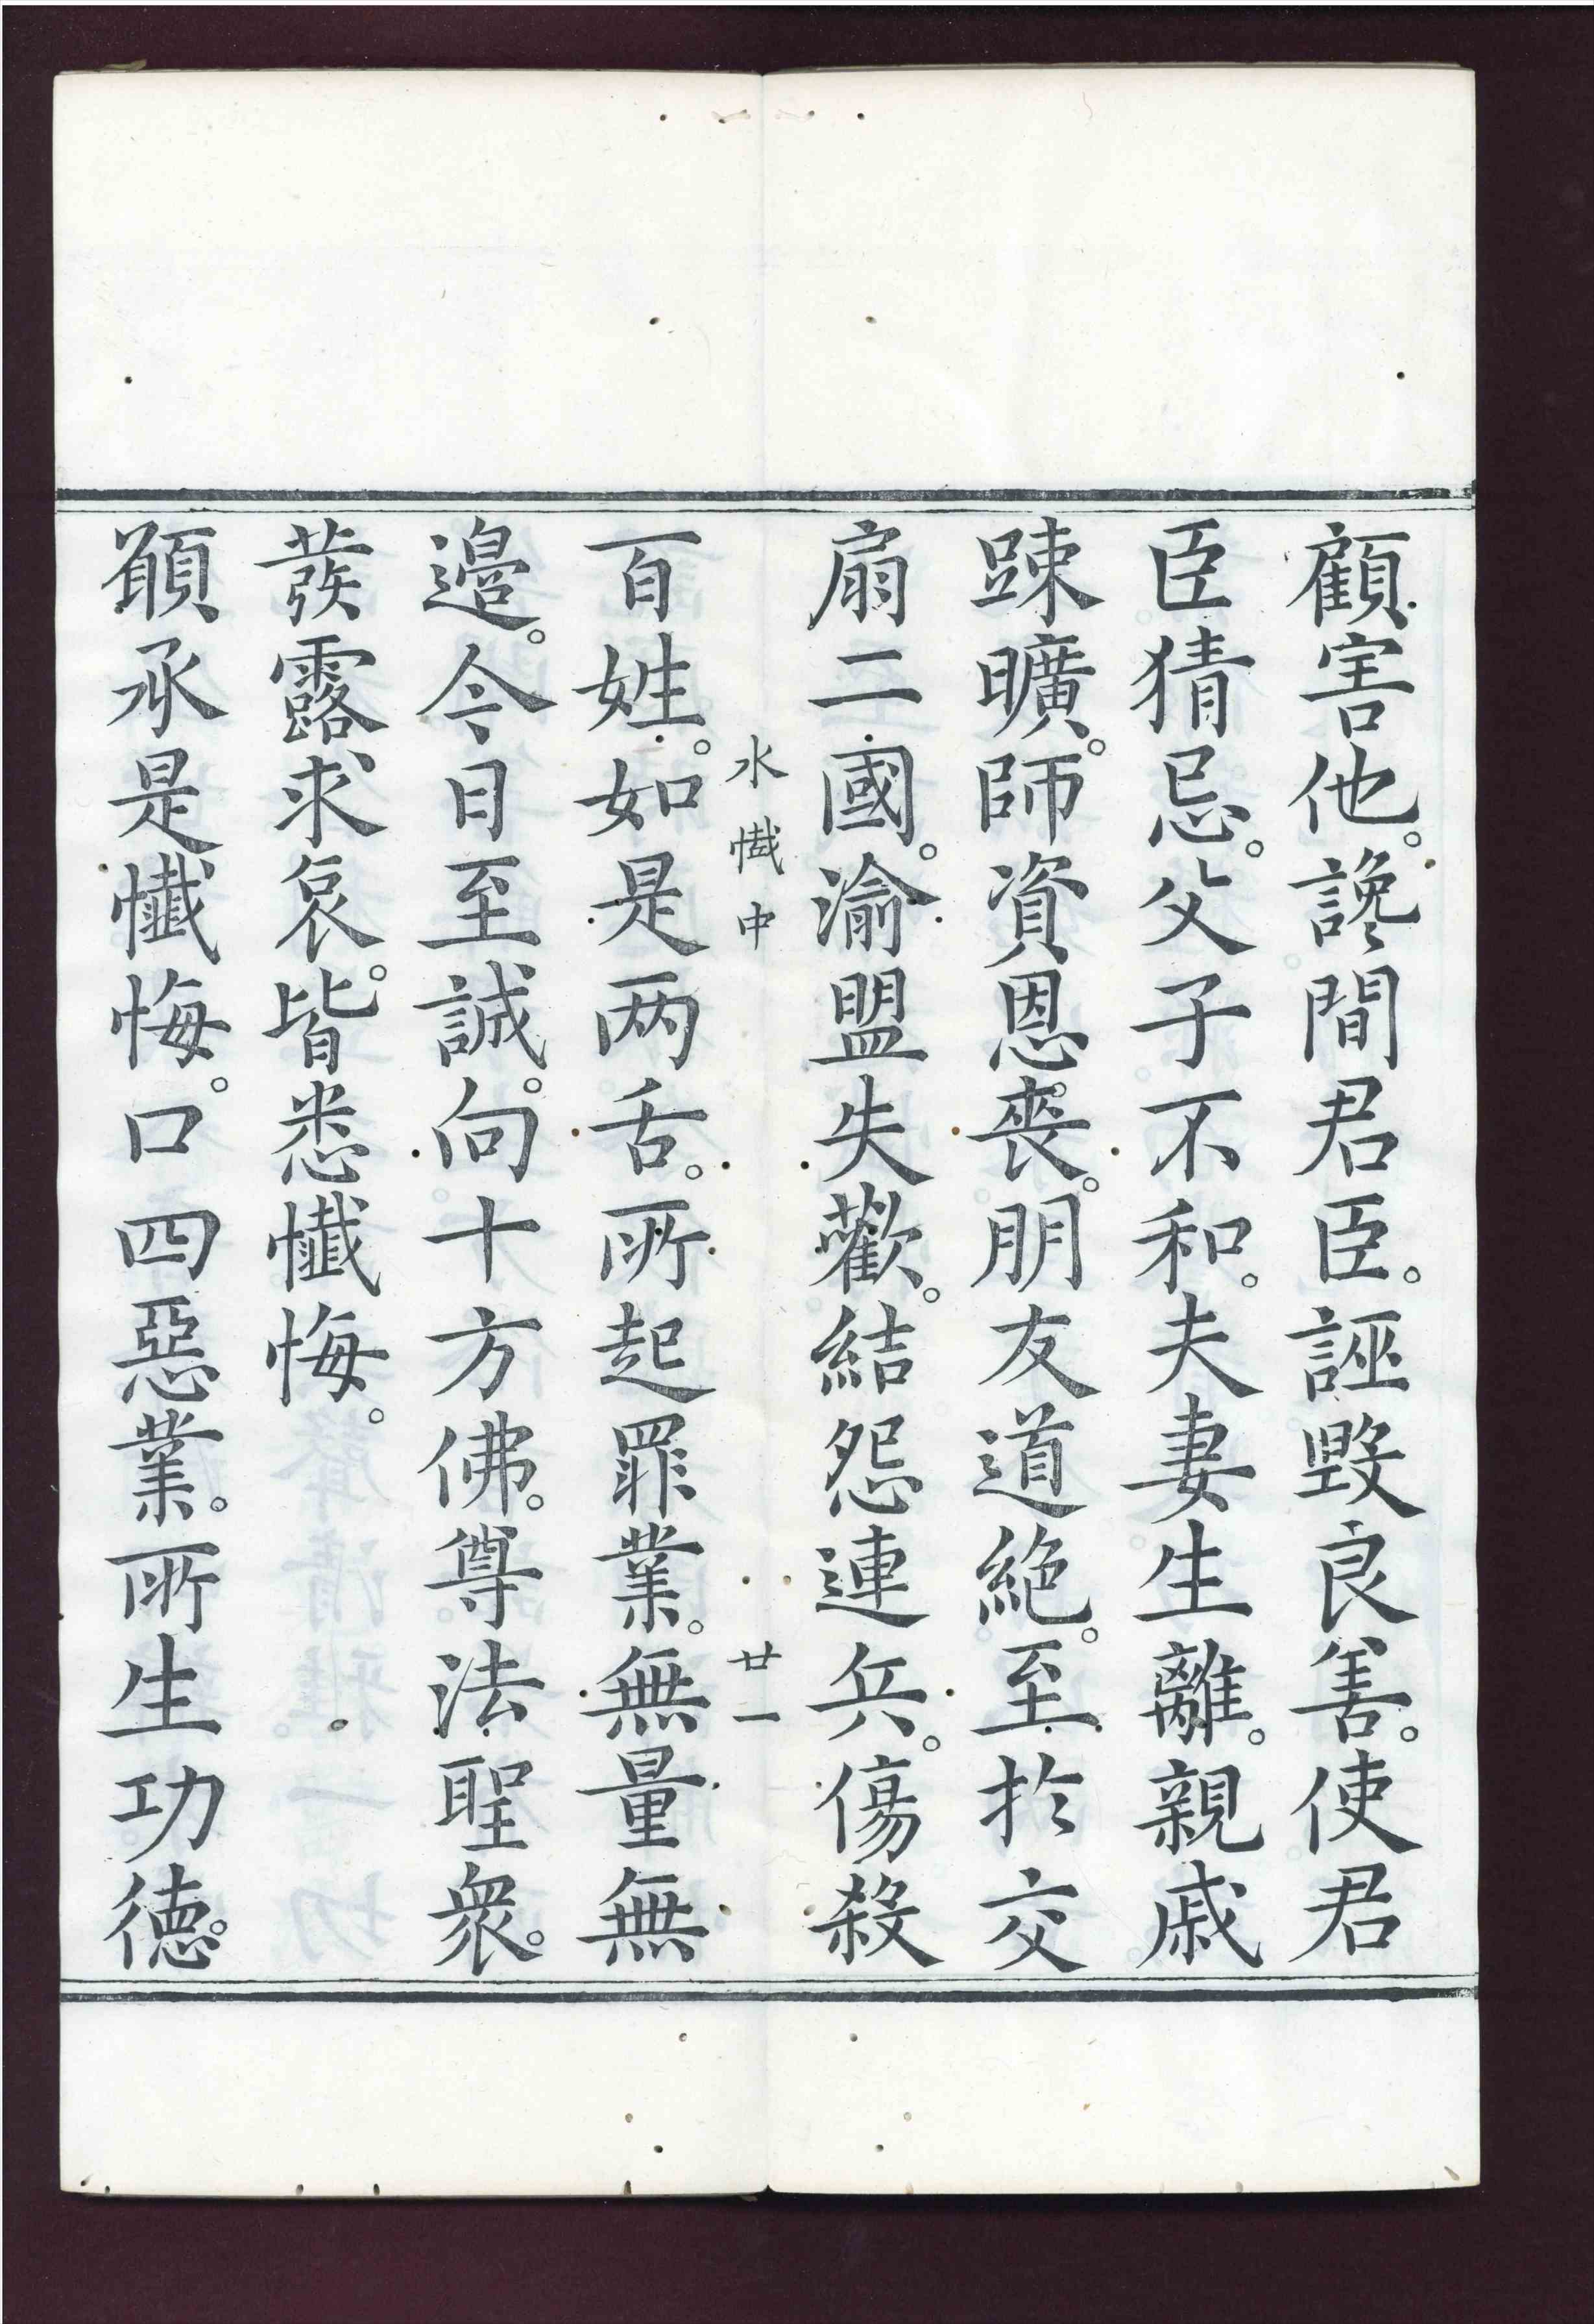 顧害他。讒間君臣。誣毀良善。使君
臣猜忌。父子不和。夫妻生離。親戚
踈曠。師資恩喪。朋友道絕。至於交
扇二國。渝盟失歡。結怨連兵。傷殺
水懺中 廿一
百姓。如是两舌。所起罪業。無量無
邉。今日至誠。向十方佛。尊法聖衆。
蕟露求哀。皆悉懺悔。
願承是懺悔。口四惡業。所生功德。